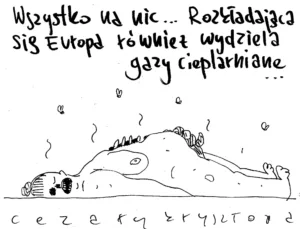 Wszystko na nic... Rozkładająca
się Europa również wydziela
gazy cieplarniane
...
cezary krysztopa